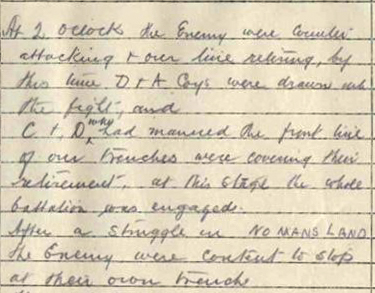 At 2 oclock the Enemy were counter
attacking & our line retiring, by
this time D & A Coys were drawn into
the fight, and
C & D who had manned the front line
of our trenches were covering their
retirement, at this stage the whole
battalion was engaged.
After a struggle in NO MANS LAND
the Enemy were content to stop
at their own trenches